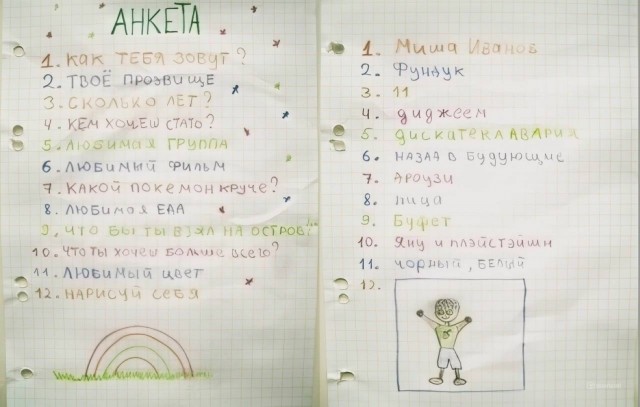 АНКЕТА
1. КАК ТЕБЯ ЗОВУТ?
2. ТВОЁ ПРОЗВИЩЕ
3. СКОЛЬКО ЛЕТ?
4. КЕМ ХОЧЕШ СТАТО?
5. ЛЮБИМАЯ ГРУППА
6. ЛЮБИМЫЙ ФИЛЬМ
7. КАКОЙ ПОКЕМОН КРУЧЕ?
8. ЛЮБИМАЯ ЕДА
9. ЧТО БЫ ТЫ ВЗЯЛ НА ОСТРОВ?
10. ЧТО ТЫ ХОЧЕШ БОЛЬШЕ ВСЕГО?
11. ЛЮБИМЫЙ ЦВЕТ
12. НАРИСУЙ СЕБЯ
1. Миша Иванов
2. Фундук
3. 11
4. диджеем
5. ДИСКАТЕКЛАВАРИЯ
6. НАЗАД В БУДУЮЩИЕ
7. ДРОУЗИ
8. пица
9. Буфет
10. Яну и плэйстэйшн
11. чорный, БЕЛЫЙ
12.